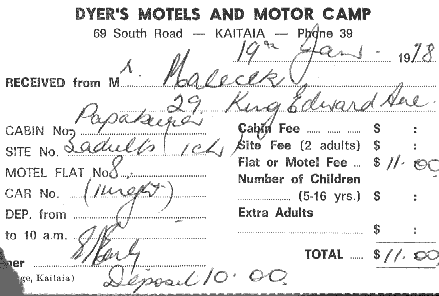 DYER'S MOTELS AND MOTOR CAMP
69 South Road — KAITAIA — Phone 39
19th Jan. 1978
RECEIVED from Mr. Malecek
29 King Edward Ave.
Papakura
CABIN No.
Cabin Fee $ :
SITE No. 2 adults 1 ch
Site Fee (2 adults) $ :
MOTEL FLAT No. 8
Flat or Motel Fee $ 11.00
CAR No. (1 night)
Number of Children
(5-16 yrs.) $ :
DEP. from
Extra Adults
$ :
to 10 a.m.
TOTAL $ 11.00
ge, Kaitaia)
Deposit 10.00